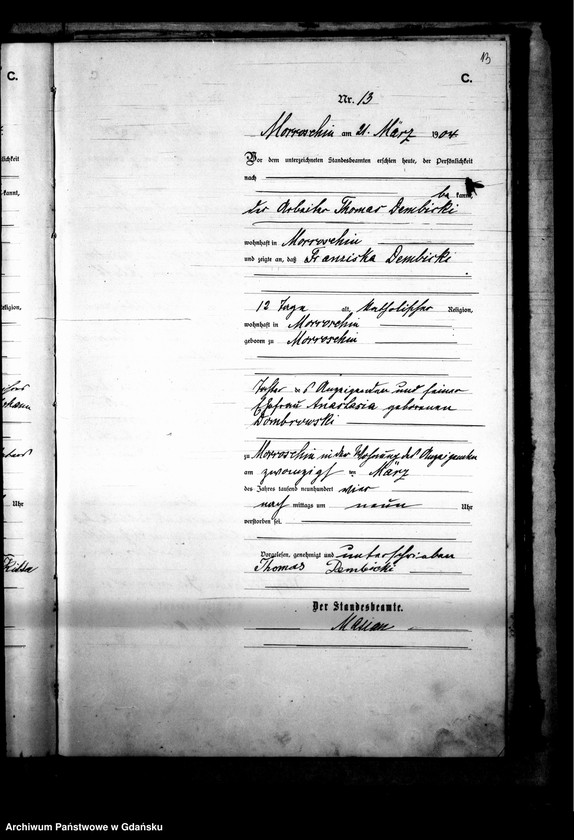 13
C.
C.
Nr. 13
Morroschin am 21. März 1904
Vor dem unterzeichneten Standesbeamten erschien heute, der Persönlichkeit
nach
be kannt,
der Arbeiter Thomas Dembicki
wohnhaft in Morroschin
und zeigte an, daß Franziska Dembicki
12 Tage alt, katholischer Religion,
wohnhaft in Morroschin
geboren zu Morroschin
Tochter des Anzeigenden und seiner
Ehefrau Anastasia geborenen
Dombrowski
zu Morroschin in der Wohnung des Anzeigenden
am zwanzigsten März
des Jahres tausend neunhundert vier
nach mittags um neun Uhr
verstorben sei.
Vorgelesen, genehmigt und unterschrieben
Thomas Dembicki
Der Standesbeamte.
Archiwum Państwowe w Gdańsku